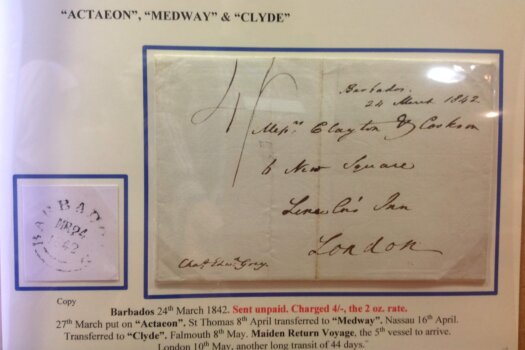 "ACTAEON", "MEDWAY" & "CLYDE"
4/
Barbados.
24 March 1842.
Messrs Clayton & Cookson
6 New Square
Lincoln's Inn
London
Chas Edwd Grey.
BARBADOS
MR 24
42
Copy
Barbados 24th March 1842. Sent unpaid. Charged 4/-, the 2 oz. rate.
27th March put on "Actaeon". St Thomas 8th April transferred to "Medway". Nassau 16th April.
Transferred to "Clyde". Falmouth 8th May. Maiden Return Voyage, the 5th vessel to arrive.
London 10th May, another long transit of 44 days.